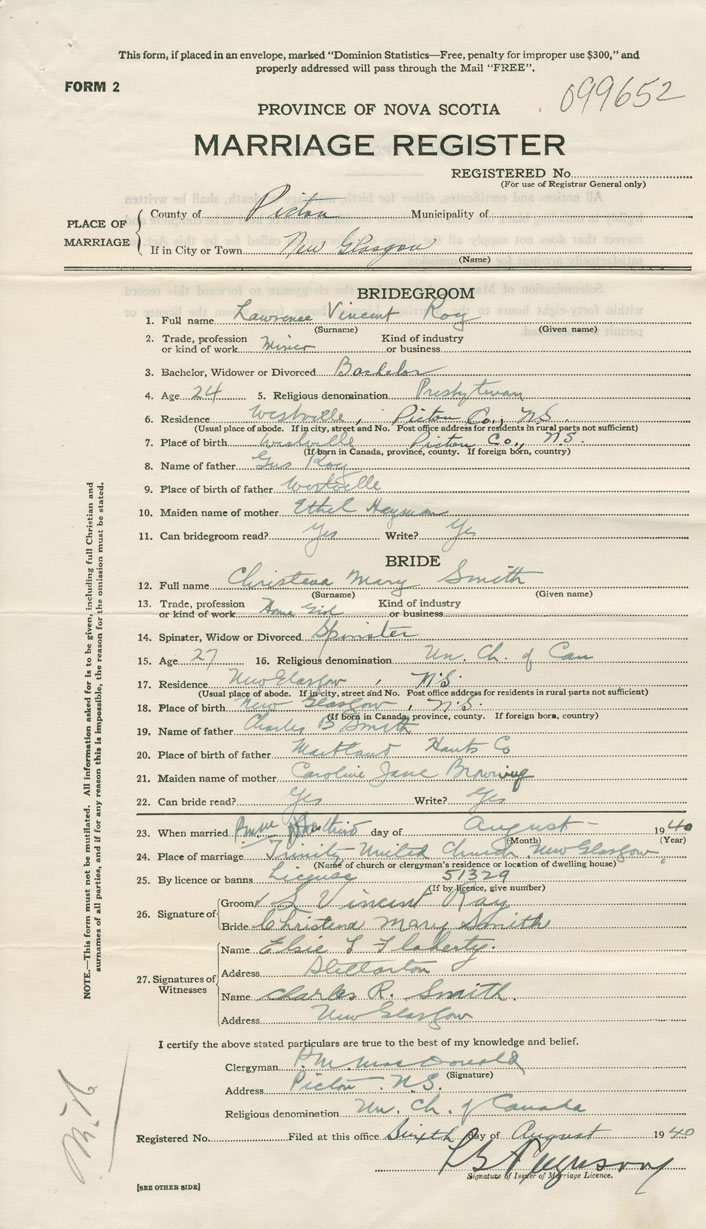 This form, if placed in an envelope, marked "Dominion Statistics—Free, penalty for improper use $300," and
properly addressed will pass through the Mail "FREE".
FORM 2
099652
PROVINCE OF NOVA SCOTIA
MARRIAGE REGISTER
REGISTERED No.
(For use of Registrar General only)
PLACE OF MARRIAGE
County of Pictou Municipality of
If in City or Town New Glasgow
(Name)
BRIDEGROOM
1. Full name Lawrence Vincent Roy
(Surname) (Given name)
2. Trade, profession or kind of work Miner Kind of industry or business
3. Bachelor, Widower or Divorced Bachelor
4. Age 24 5. Religious denomination Presbyterian
6. Residence Westville, Pictou Co., N.S.
(Usual place of abode. If in city, street and No. Post office address for residents in rural parts not sufficient)
7. Place of birth Westville Pictou Co., N.S.
(If born in Canada, province, county. If foreign born, country)
8. Name of father Gus Roy
9. Place of birth of father Westville
10. Maiden name of mother Ethel Hayman
11. Can bridegroom read? Yes Write? Yes
BRIDE
12. Full name Christena Mary Smith
(Surname) (Given name)
13. Trade, profession or kind of work Home Girl Kind of industry or business
14. Spinster, Widow or Divorced Spinster
15. Age 27 16. Religious denomination Un. Ch. of Can
17. Residence New Glasgow, N.S.
(Usual place of abode. If in city, street and No. Post office address for residents in rural parts not sufficient)
18. Place of birth New Glasgow, N.S.
(If born in Canada, province, county. If foreign born, country)
19. Name of father Charles B Smith
20. Place of father Maitland Hants Co
21. Maiden name of mother Caroline Jane Browning
22. Can bride read? Yes Write? Yes
23. When married day of August 1940
(Month) (Year)
24. Place of marriage Trinity United Church New Glasgow
(Name of church or clergyman's residence or location of dwelling house)
25. By licence or banns License 51329
(If by licence, give number)
26. Signature of
Groom L Vincent Roy
Bride Christena Mary Smith
27. Signatures of Witnesses
Name Elsie L Flaherty
Address Stellarton
Name Charles R. Smith.
Address New Glasgow
I certify the above stated particulars are true to the best of my knowledge and belief.
Clergyman P.M. MacDonald
(Signature)
Address Pictou N.S.
Religious denomination Un. Ch. of Canada
Registered No. Filed at this office Sixth day of August 1940
Signature of Issuer of Marriage Licence.
[SEE OTHER SIDE]
NOTE.—This form must not be mutilated. All information asked for is to be given, including full Christian and
surnames of all parties, and if for any reason this is impossible, the reason for the omission must be stated.